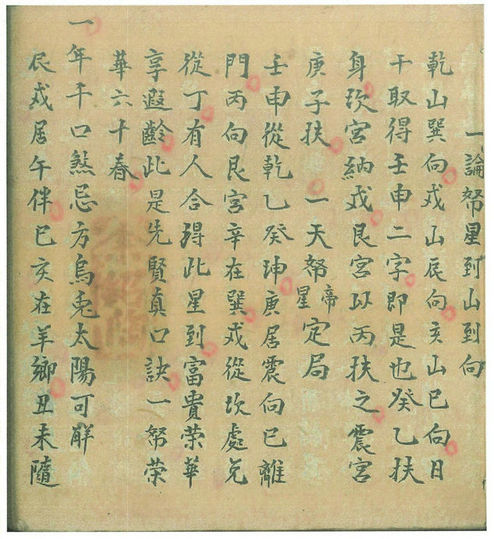 一論帑星到山到向
乾山巽向戍山辰向亥山巳向日
干取得壬申二字即是也癸乙扶
身坎宮納戍艮宮以丙扶之震宮
庚子扶　一天帑星帝定局
壬申從乾乙癸坤庚居震向巳離
門丙向艮宮辛在巽戍從坎處兌
從丁有人合得此星到富貴荣華
享遐齡此是先賢真口訣一帑荣
華六十春
一年干口煞忌方烏兎太陽可解
辰戍居午伴巳亥在羊鄉丑未隨